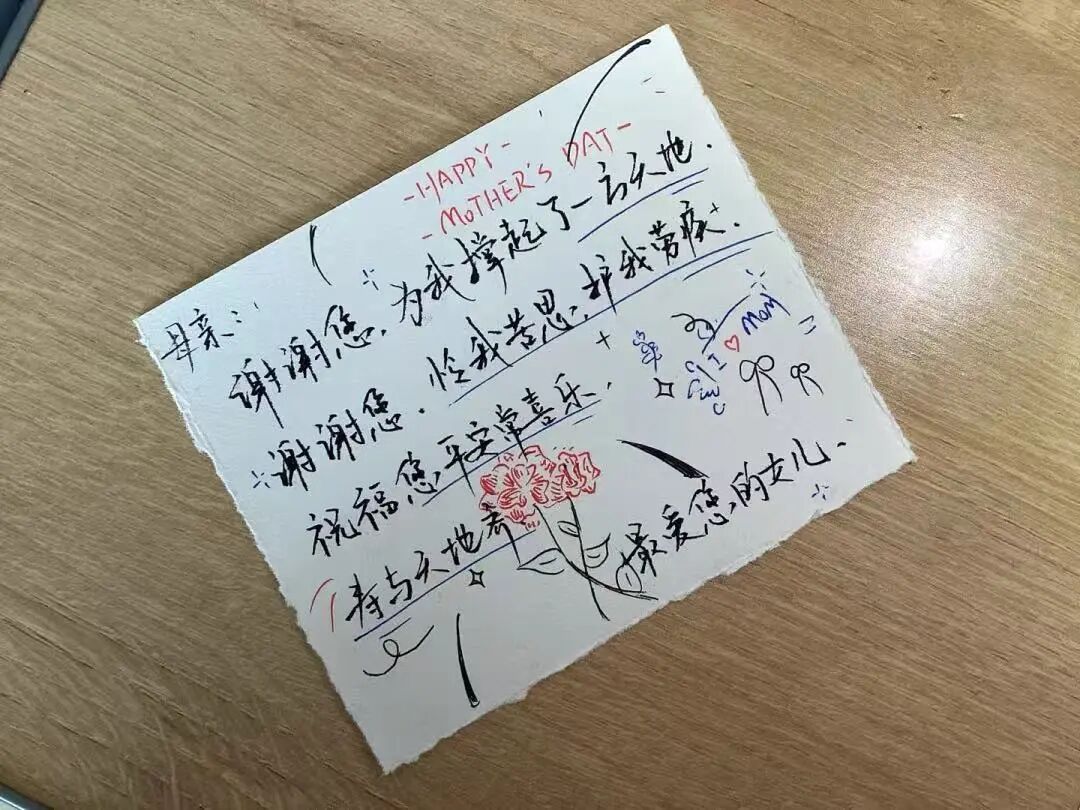 -HAPPY-
-MOTHER'S DAT-
母亲:
谢谢您,为我撑起了一方天地.
谢谢您.怜我苦思,护我劳疾.
祝福您,平安常喜乐.
寿与天地齐
最爱您的女儿.
I ♡ MOM